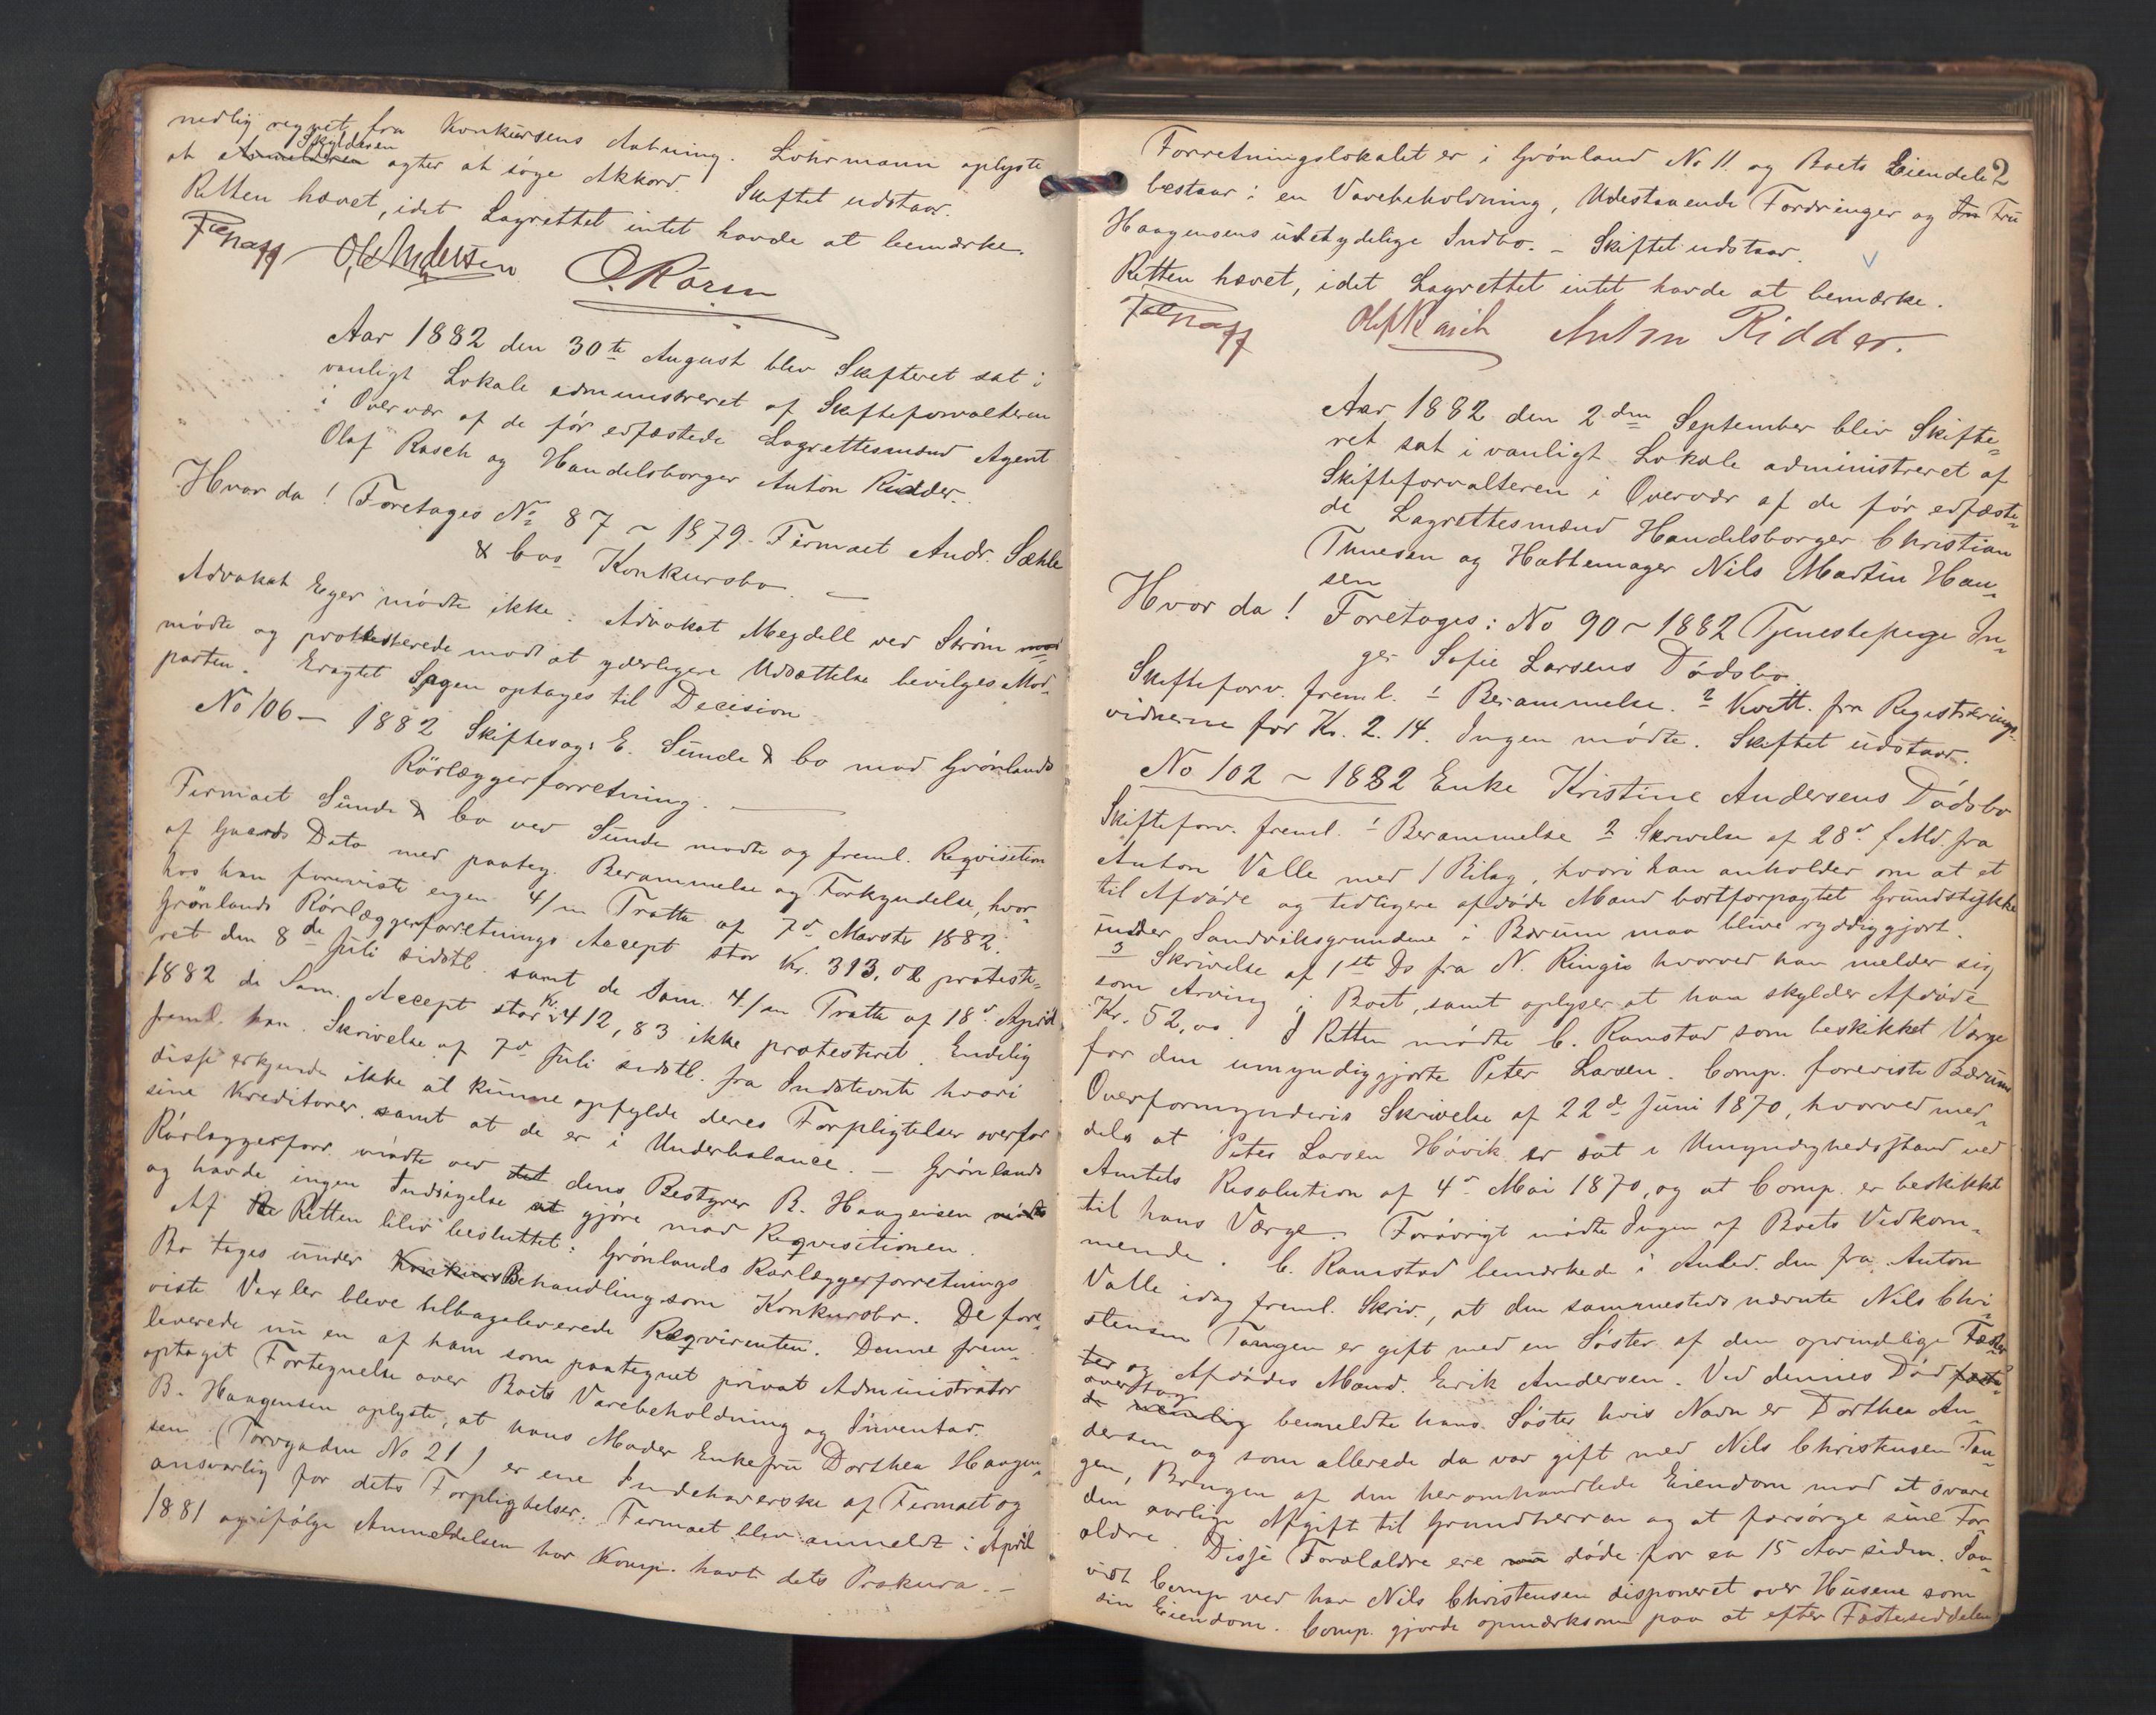 nedlig regnet fra Konkursens Aabning. Löhrmann oplyste
Skyldneren
at Anmelderen agter at søge Akkord. Skiftet udstaar.
Retten hævet, idet Lagrettet intet havde at bemærke.
Ol Andersen O. Røren
Aar 1882 den 30te August blev Skifteret sat i
vanligt Lokale administreret af Skifteforvalteren
i Overvær af de før edfæstede Lagrettesmænd Agent
Olaf Rasch og Handelsborger Anton Ridder.
Hvor da! Foretages No 87 ~ 1879. Firmaet Andr. Sæhle
& Cos Konkursbo. —
Advokat Eger mødte ikke. Advokat Meydell ved Strøm mod
mødte og protesterede mod at yderligere Udsættelse bevilges Mod-
parten. Eragtet Sagen optages til Decision.
No 106 — 1882 Skiftesag: E. Sunde & Co mod Grønlands
Rørlæggerforretning. —
Firmaet Sunde & Co ved Sunde mødte og freml. Reqvisition
af Gaards Dato med paateg. Berammelse og Forkyndelse, hvor-
hos han foreviste egen 4/m Tratte af 7d Marts 1882.
Grønlands Rørlæggerforretnings Accept stor Kr. 313,02 proteste-
ret den 8de Juli sidstl. samt de Sam. 4/m Tratte af 18d April
1882 de Sam. Accept stor Kr. 412,83 ikke protesteret. Endelig
freml. han Skrivelse af 7d Juli sidstl. fra Indstevnte hvori
disse erkjende ikke at kunne opfylde deres Forpligtelser overfor
sine Kreditorer, samt at de er i Underbalance. — Grønlands
Rørlæggerforr. mødte ved det dens Bestyrer B. Haagensen mødte
og havde ingen Indsigelse at gjøre mod Reqvisitionen.
Af Re Retten blev besluttet: Grønlands Rørlæggerforretnings
Bo tages under Konkurs Behandling som Konkursbo. De fore-
viste Vexler bleve tilbageleverede Reqvirenten. Denne frem-
leverede nu en af ham som paategnet privat Administrator
optaget Fortegnelse over Boets Varebeholdning og Inventar.
B. Haagensen oplyste, at hans Moder Enkefru Dorthea Haagen-
sen (Torvgaden No 21) er ene Indehaverske af Firmaet og
ansvarlig for dets Forpligtelser. Firmaet blev anmeldt i April
1881 og ifølge Anmeldelsen har Komp. havt dets Prokura. —
Forretningslokalet er i Grønland No 11 og Boets Eiendele 2
bestaar i en Varebeholdning, Udestaaende Fordringer og Fru
Haagensens ubetydelige Indbo. — Skiftet udstaar.
Retten hævet, idet Lagrettet intet havde at bemærke.
Olaf Rasch Anton Ridder.
Aar 1882 den 2den September blev Skifte-
ret sat i vanligt Lokale administreret af
Skifteforvalteren i Overvær af de før edfæste-
de Lagrettesmænd Handelsborger Christian
Thuesen og Hattemager Nils Martin Han-
sen
Hvor da! Foretages: No 90 ~ 1882 Tjenestepige In-
ger Sofie Larsens Dødsbo.
Skifteforv. freml. 1 Berammelse. 2 Kvitt. fra Registrerings-
vidnerne for Kr. 2.14. Ingen mødte. Skiftet udstaar.
No 102 ~ 1882 Enke Kristine Andersens Dødsbo
Skifteforv. freml. 1 Berammelse 2 Skrivelse af 28d f. Md. fra
Anton Valle med 1 Bilag, hvori han anholder om at et
til Afdøde og tidligere afdøde Mand bortforpagtet Grundstykke
under Sandviksgrundene i Bærum maa blive ryddiggjort.
3 Skrivelse af 1ste Ds fra N. Ringis hvorved han melder sig
som Arving i Boet, samt oplyser at han skylder Afdøde
Kr. 52,00. I Retten mødte C. Ramstad som beskikket Værge
for den umyndiggjorte Peter Larsen. Comp. foreviste Bærums
Overformynderis Skrivelse af 22de Juni 1870, hvorved med-
deles at Peter Larsen Høvik er sat i Umyndighedsstand ved
Amtets Resolution af 4d Mai 1870, og at Comp. er beskikket
til hans Værge. Forøvrigt mødte Ingen af Boets Vedkom-
mende. C. Ramstad bemærkede i Anled. den fra Anton
Valle idag freml. Skriv., at den sammesteds nævnte Nils Chri-
stensen Tangen er gift med en Søster af den oprindelige Fæster
ter og Afdødes Mand. Erik Andersen. Ved dennes Død
overtog
de nemlig bemeldte hans Søster hvis Navn er Dorthea An-
dersen og som allerede da var gift med Nils Christensen Tan-
gen, Brugen af den heromhandlede Eiendom mod at svare
den aarlige Afgift til Grundherren og at forsørge sine For-
ældre. Disse Forældre ere nu døde for en 15 Aar siden. Saa-
vidt Comp. ved har Nils Christensen disponeret over Husene som
sin Eiendom. Comp. gjorde opmærksom paa at efter Fæsteseddelen